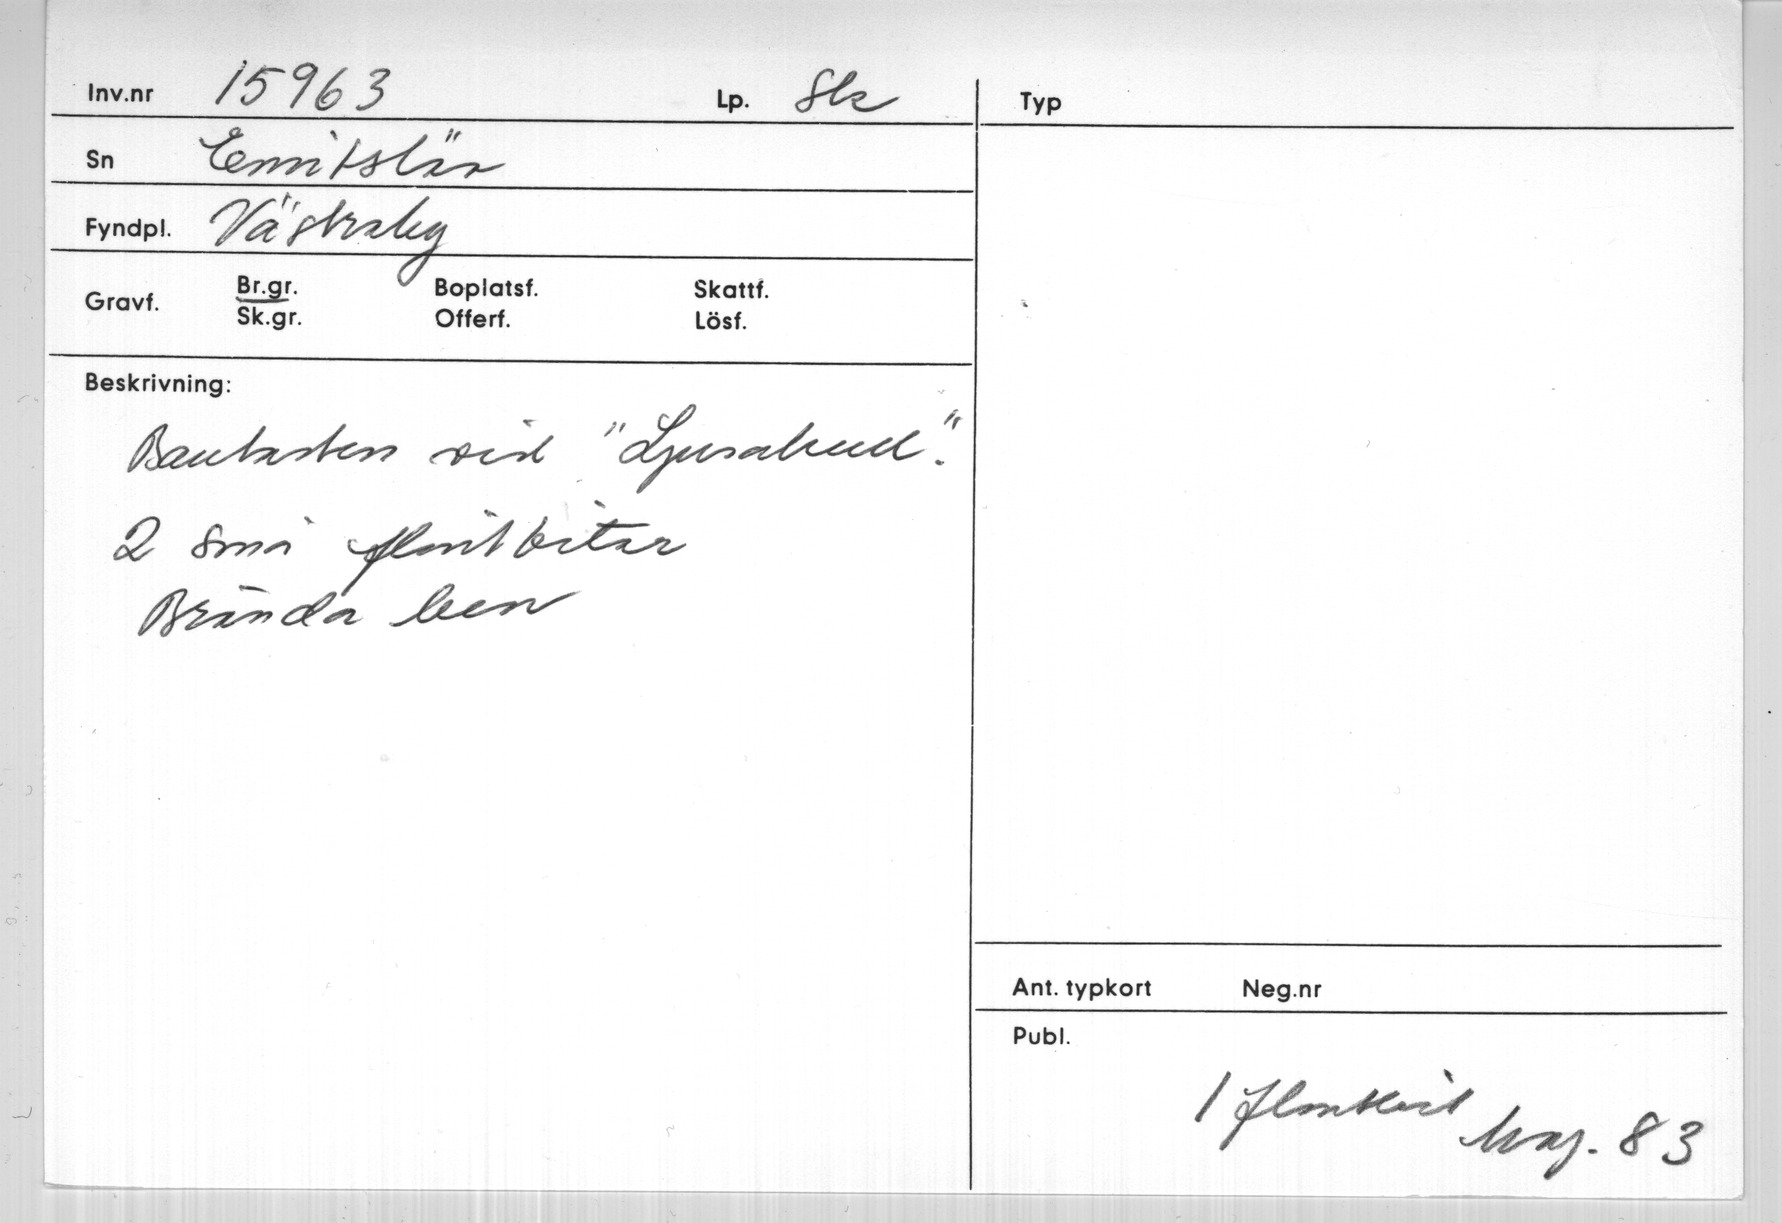 Inv.nr 15963 Lp. Sk
Sn Emitslöv
Fyndpl. Västraby
Gravf. Br.gr. Boplatsf. Skattf.
Sk.gr. Offerf. Lösf.
Beskrivning:
Bautasten vid "Ljusakull".
2 små flintbitar
Brända ben
Typ
Ant. typkort Neg.nr
Publ.
1 flintbit
Mag. 83